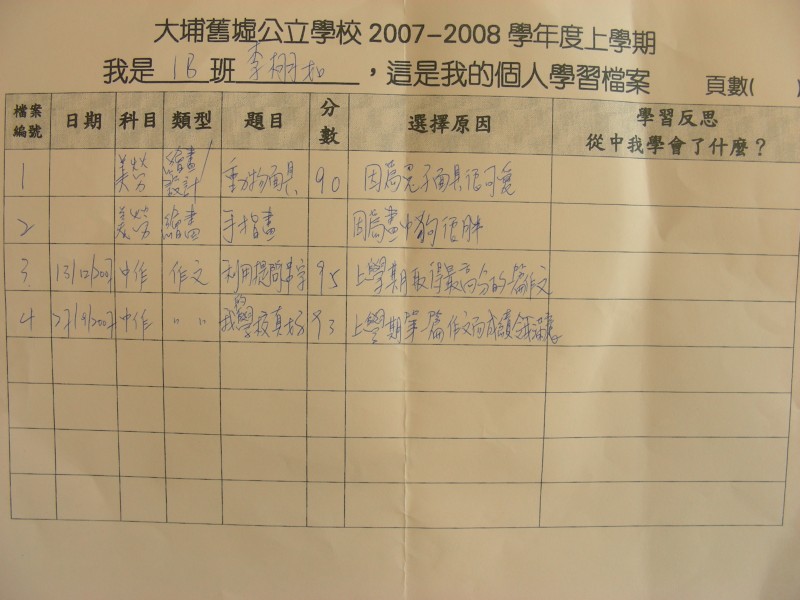 大埔舊墟公立學校 2007-2008 學年度上學期
我是 1B 班 李栩如 ，這是我的個人學習檔案 頁數( )
檔案編號 日期 科目 類型 題目 分數 選擇原因 學習反思 從中我學會了什麼？
1 美勞 繪畫/設計 動物面具 90 因為兔子面具很可愛
2 美勞 繪畫 手指畫 因為畫中狗很胖
3 13/12/2007 中作 作文 利用提問 95 上學期取得最高分的篇作文
4 中作 〃 〃 我的學校真好 93 上學期第一篇作文而成績令